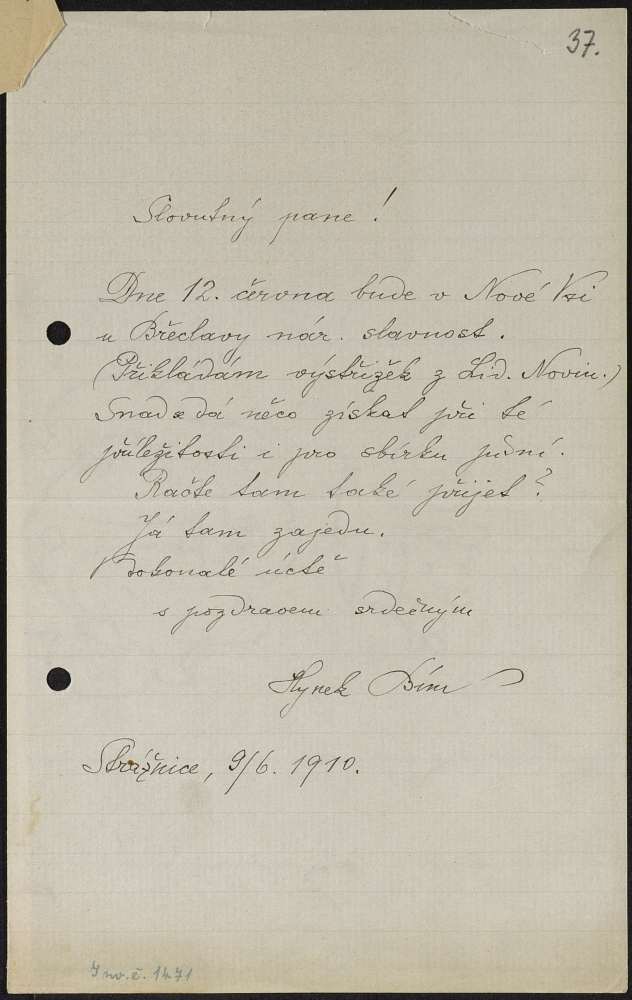 37.
Slovutný pane!
Dne 12. června bude v Nové Vsi
u Břeclavy nár. slavnost.
(Přikládám výstřižek z Lid. Novin.)
Snad se dá něco získat při té
příležitosti i pro sbírku písní.
Račte tam také přijet?
Já tam zajedu.
V dokonalé úctě
s pozdravem srdečným
Hynek Bím
Strážnice, 9/6. 1910.
Inv. č. 1471